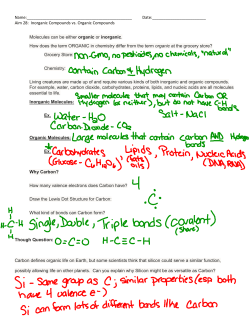 Name: Date:
Aim 28: Inorganic Compounds vs. Organic Compounds
Molecules can be either organic or inorganic.
How does the term ORGANIC in chemistry differ from the term organic at the grocery store?
Grocery Store: non-Gmo, no pesticides, no chemicals, "natural"
Chemistry: contain Carbon & Hydrogen
Living creatures are made up of and require various kinds of both inorganic and organic compounds.
For example, water, carbon dioxide, carbohydrates, proteins, lipids, and nucleic acids are all molecules
essential to life. Smaller molecules that may contain Carbon OR
Inorganic Molecules: Hydrogen (or neither), but do not have C-H
bonds
Ex: Water - H2O Salt - NaCl
Carbon Dioxide - CO2
Organic Molecules: Large molecules that contain carbon AND Hydrogen
bonds
Ex: Carbohydrates, Lipids, Protein, Nucleic Acids
(Glucose - C6H12O6) (fats/oils) (DNA/RNA)
Why Carbon?
How many valence electrons does Carbon have? 4
Draw the Lewis Dot Structure for Carbon:
What kind of bonds can Carbon form?
Single, Double, Triple bonds (covalent)
(share)
H
H-C-H
H
Though Question: O=C=O H-C≡C-H
Carbon defines organic life on Earth, but some scientists think that silicon could serve a similar function,
possibly allowing life on other planets. Can you explain why Silicon might be as versatile as Carbon?
Si - Same group as C, similar properties (esp both
have 4 valence e-)
Si can form lots of different bonds like Carbon